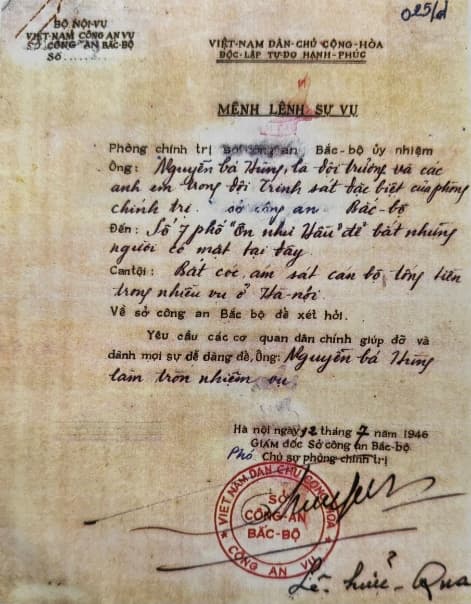 025/d
BỘ NỘI-VỤ
VIỆT-NAM CÔNG AN VỤ
SỞ CÔNG AN BẮC-BỘ
Số.......
VIỆT-NAM DÂN-CHỦ CỘNG-HÒA
ĐỘC-LẬP TỰ-DO HẠNH-PHÚC
MỆNH LỆNH SỰ VỤ
Phòng chính trị sở công an Bắc-bộ ủy nhiệm
Ông: Nguyễn bá Hùng, là đội trưởng và các
anh em trong đội Trinh sát đặc biệt của phòng
chính trị. sở công an Bắc-bộ
Đến: Số 7 phố "Ôn như Hầu" để bắt những
người có mặt tại đây
Can tội: Bắt cóc, ám sát cán bộ, tống tiền
trong nhiều vụ ở Hà-nội.
Về sở công an Bắc bộ để xét hỏi.
Yêu cầu các cơ quan dân chính giúp đỡ và
dành mọi sự dễ dàng để, Ông: Nguyễn bá Hùng
làm tròn nhiệm vụ
Hà nội ngày 12 tháng 7 năm 1946
GIÁM đốc Sở công an Bắc-bộ
Phó Chủ sự phòng chính trị
VIỆT NAM DÂN CHỦ CỘNG HÒA
SỞ
CÔNG-AN
BẮC-BỘ
CÔNG AN VỤ
Lê Hữu Qua